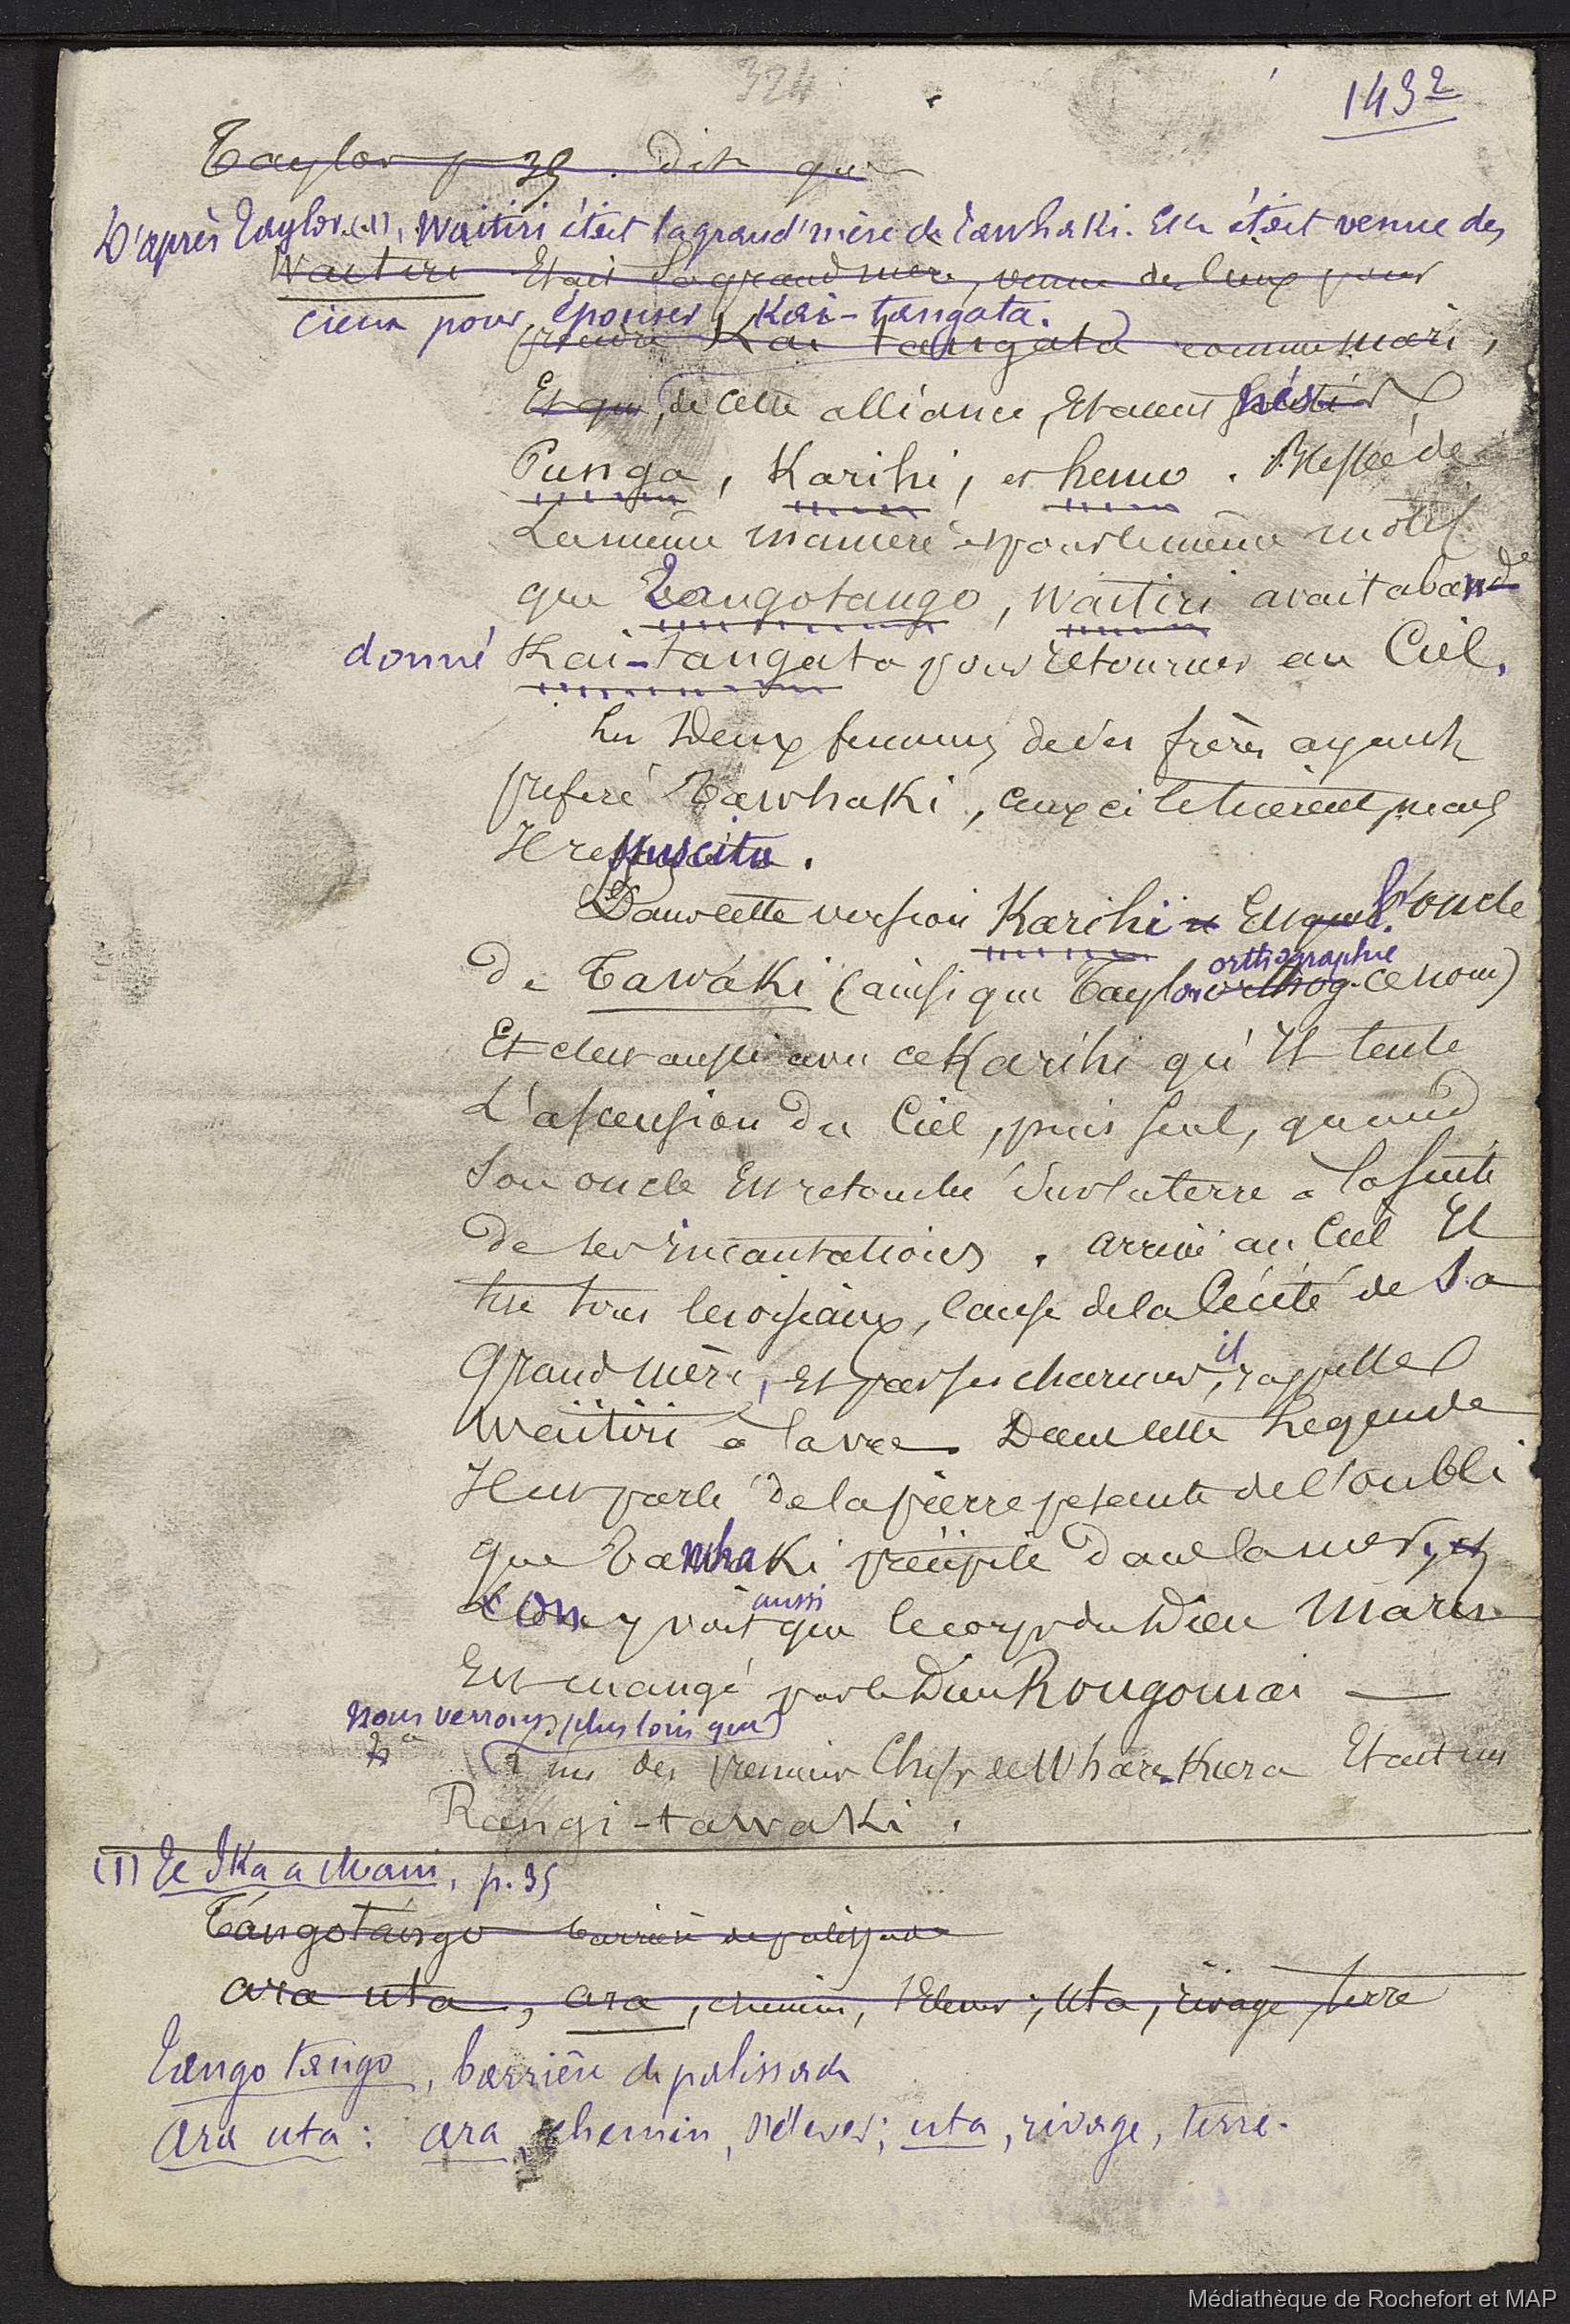 324
143 2
Taylor p 35. dit que
D'après Taylor (1), Waitiri était la grand'mère de Tawhaki. Elle était venue des
Waitiri Etait la grand mère, venue des Cieux pour
cieux pour épouser Kai-tangata.
prendre Kai tangata comme mari,
Et que, de cette alliance, Etaient nés
Punga, Karihi, et hema. Blessée de
La même manière et pour le même motif
que Tangotango, Waitiri avait aban
donné Kai-tangata pour retourner au Ciel.
Les Deux femmes de ses frères ayant
preferé Tawhaki, ceux ci le tuèrent, mais
Il ressuscita.
Dans cette version Karihi Est l'oncle
orthographie
De Tawaki (ainsi que Taylor orthog. ce nom)
Et c'est aussi avec ce Karihi qu'Il tente
L'ascension du Ciel, puis seul, quand
Son oncle Est retombé sur la terre à la suite
De ses Incantations. arrivé au Ciel Il
tue tous les oiseaux, cause de la Cécité de Sa
il
Grand mère, et par ses charmes, rappelle
Waitiri à la vie. Dans cette Legende
Il est parlé de la pierre pesante de l'oubli
que Tawhaki précipite dans la mer, et
aussi
L'on y voit que le corps du Dieu Maru
Est mangé par le Dieu Rongomai —
Nous verrons plus loin que
l'un des premiers Chefs de Whare-Kura Etait un
Rangi-tawaki.
(1) Te Ika a Maui, p. 35
Tángotángo barrière de palissade
ara uta, ara, chemin, s'Elever; uta, rivage, terre
Tango tango, barrière de palissade
Ara uta: ara, chemin, s'élever; uta, rivage, terre.
Médiathèque de Rochefort et MAP